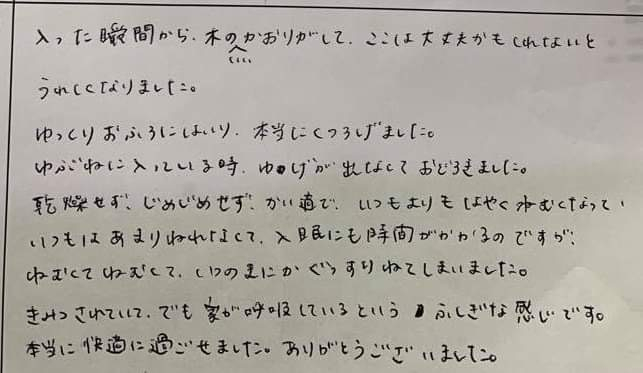 入った瞬間から、木のかおりがして、ここは大丈夫かもしれないと
うれしくなりました。
ゆっくりおふろにはいり、本当にくつろげました。
ゆぶねに入っている時、ゆげが出なくておどろきました。
乾燥せず、じめじめせず、かい適で、いつもよりもはやくねむくなって、
いつもはあまりねれなくて、入眠にも時間がかかるのですが、
ねむくてねむくて、いつのまにかぐっすりねてしまいました。
きみつされていて、でも家が呼吸しているというふしぎな感じです。
本当に快適に過ごせました。ありがとうございました。